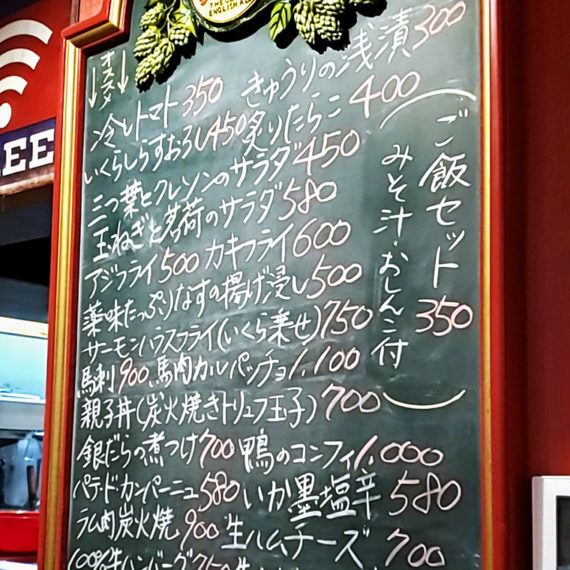 THE
ENGLISH
EE
オススメ
↓ ↓
冷しトマト350 きゅうりの浅漬300
いくらしらすおろし450 炙りたらこ400
三つ葉とクレソンのサラダ450
玉ねぎと茗荷のサラダ580
アジフライ500 カキフライ600
薬味たっぷりなすの揚げ浸し500
サーモンハラスフライ(いくら乗せ)750
馬刺900 馬肉カルパッチョ1,100
親子丼(炭火焼きトリュフ玉子)700
銀だらの煮つけ700 鴨のコンフィ1,000
パテ・ド・カンパーニュ580 いか墨塩辛580
ラム肉炭火焼900 生ハムチーズ700
100%牛ハンバーグ750
ご飯セット350
(みそ汁・おしんこ付)